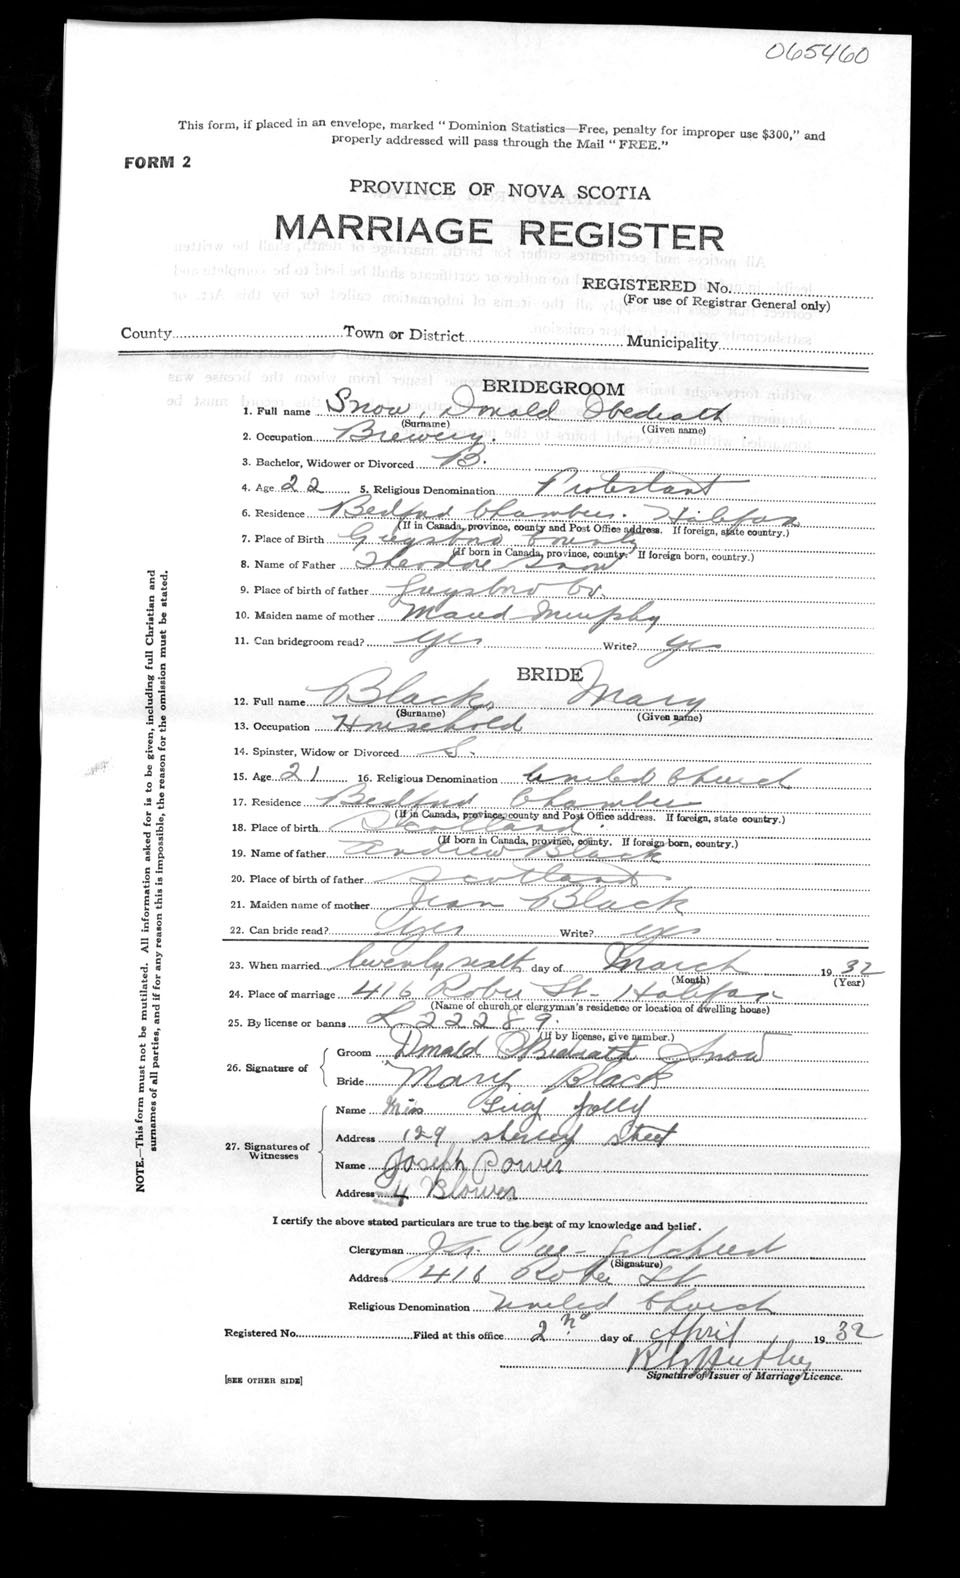 065460
This form, if placed in an envelope, marked "Dominion Statistics—Free, penalty for improper use $300," and
properly addressed will pass through the Mail "FREE."
FORM 2
PROVINCE OF NOVA SCOTIA
MARRIAGE REGISTER
REGISTERED No.
(For use of Registrar General only)
County Town or District Municipality
BRIDEGROOM
1. Full name Snow, Donald
(Surname) (Given name)
2. Occupation Brewery.
3. Bachelor, Widower or Divorced B.
4. Age 22 5. Religious Denomination Protestant
6. Residence Bedford Chambers. Halifax
(If in Canada, province, county and Post Office address. If foreign, state country.)
7. Place of Birth Guysboro County
(If born in Canada, province, county. If foreign born, country.)
8. Name of Father Theodore Snow
9. Place of birth of father Guysboro Co.
10. Maiden name of mother Maud Murphy
11. Can bridegroom read? Yes Write? Yes
BRIDE
12. Full name Black, Mary
(Surname) (Given name)
13. Occupation Household
14. Spinster, Widow or Divorced S.
15. Age 21 16. Religious Denomination United Church
17. Residence Bedford Chambers
(If in Canada, province, county and Post Office address. If foreign, state country.)
18. Place of birth Scotland.
(If born in Canada, province, county. If foreign born, country.)
19. Name of father Andrew Black
20. Place of birth of father Scotland
21. Maiden name of mother Jean Black
22. Can bride read? Yes Write? Yes
23. When married day of March 1932
(Month) (Year)
24. Place of marriage 416 Robie St - Halifax
(Name of church or clergyman's residence or location of dwelling house)
25. By license or banns L. 22289.
(If by license, give number.)
26. Signature of
Groom Donald Snow
Bride Mary Black
27. Signatures of Witnesses
Name Miss Jolly
Address 129 Shirley Street
Name Joseph Power
Address 4 Blowers
I certify the above stated particulars are true to the best of my knowledge and belief.
Clergyman
(Signature)
Address 416 Robie St
Religious Denomination United Church
Registered No. Filed at this office 2nd day of April 1932
Signature of Issuer of Marriage Licence.
[SEE OTHER SIDE]
NOTE.—This form must not be mutilated. All information asked for is to be given, including full Christian and
surnames of all parties, and if for any reason this is impossible, the reason for the omission must be stated.